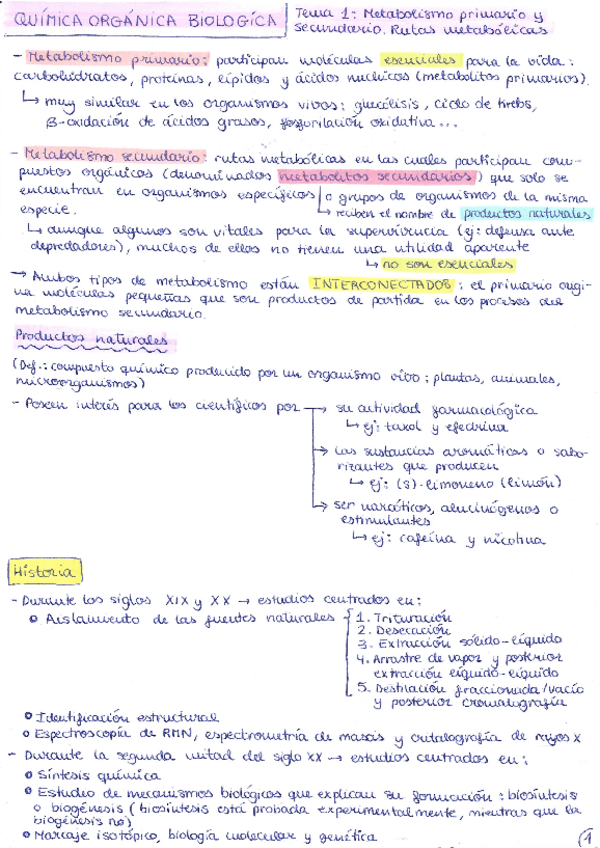 QUÍMICA ORGÁNICA BIOLOGÍCA
Tema 1: Metabolismo primario y
secundario. Rutas metabólicas
- Metabolismo primario: participan moléculas esenciales para la vida:
carbohidratos, proteínas, lípidos y ácidos nucleicos (metabolitos primarios).
↳ muy similar en los organismos vivos: glucólisis, ciclo de Krebs,
β-oxidación de ácidos grasos, fosforilación oxidativa...
- Metabolismo secundario: rutas metabólicas en las cuales participan com-
puestos orgánicos (denominados metabolitos secundarios) que solo se
encuentran en organismos específicos / o grupos de organismos de la misma
especie.
↳ reciben el nombre de productos naturales
↳ aunque algunos son vitales para la supervivencia (ej: defensa ante
depredadores), muchos de ellos no tienen una utilidad aparente
↳ no son esenciales
→ Ambos tipos de metabolismo están INTERCONECTADOS: el primario origi-
na moléculas pequeñas que son productos de partida en los procesos del
metabolismo secundario.
Productos naturales
(Def.: compuesto químico producido por un organismo vivo: plantas, animales,
microorganismos)
- Poseen interés para los científicos por → su actividad farmacológica
↳ ej: taxol y efedrina
→ las sustancias aromáticas o sabo-
rizantes que producen
↳ ej: (S)-limoneno (limón)
→ ser narcóticos, alucinógenos o
estimulantes
↳ ej: cafeína y nicotina
Historia
- Durante los siglos XIX y XX → estudios centrados en:
o Aislamiento de las fuentes naturales
1. Trituración
2. Desecación
3. Extracción sólido-líquido
4. Arrastre de vapor y posterior
extracción líquido-líquido
5. Destilación fraccionada/vacío
y posterior cromatografía
o Identificación estructural
o Espectroscopía de RMN, espectrometría de masas y cristalografía de rayos X
- Durante la segunda mitad del siglo XX → estudios centrados en:
o Síntesis química
o Estudio de mecanismos biológicos que explican su formación: biosíntesis
o biogénesis (biosíntesis está probada experimentalmente, mientras que la
biogénesis no)
o Marcaje isotópico, biología molecular y genética
1